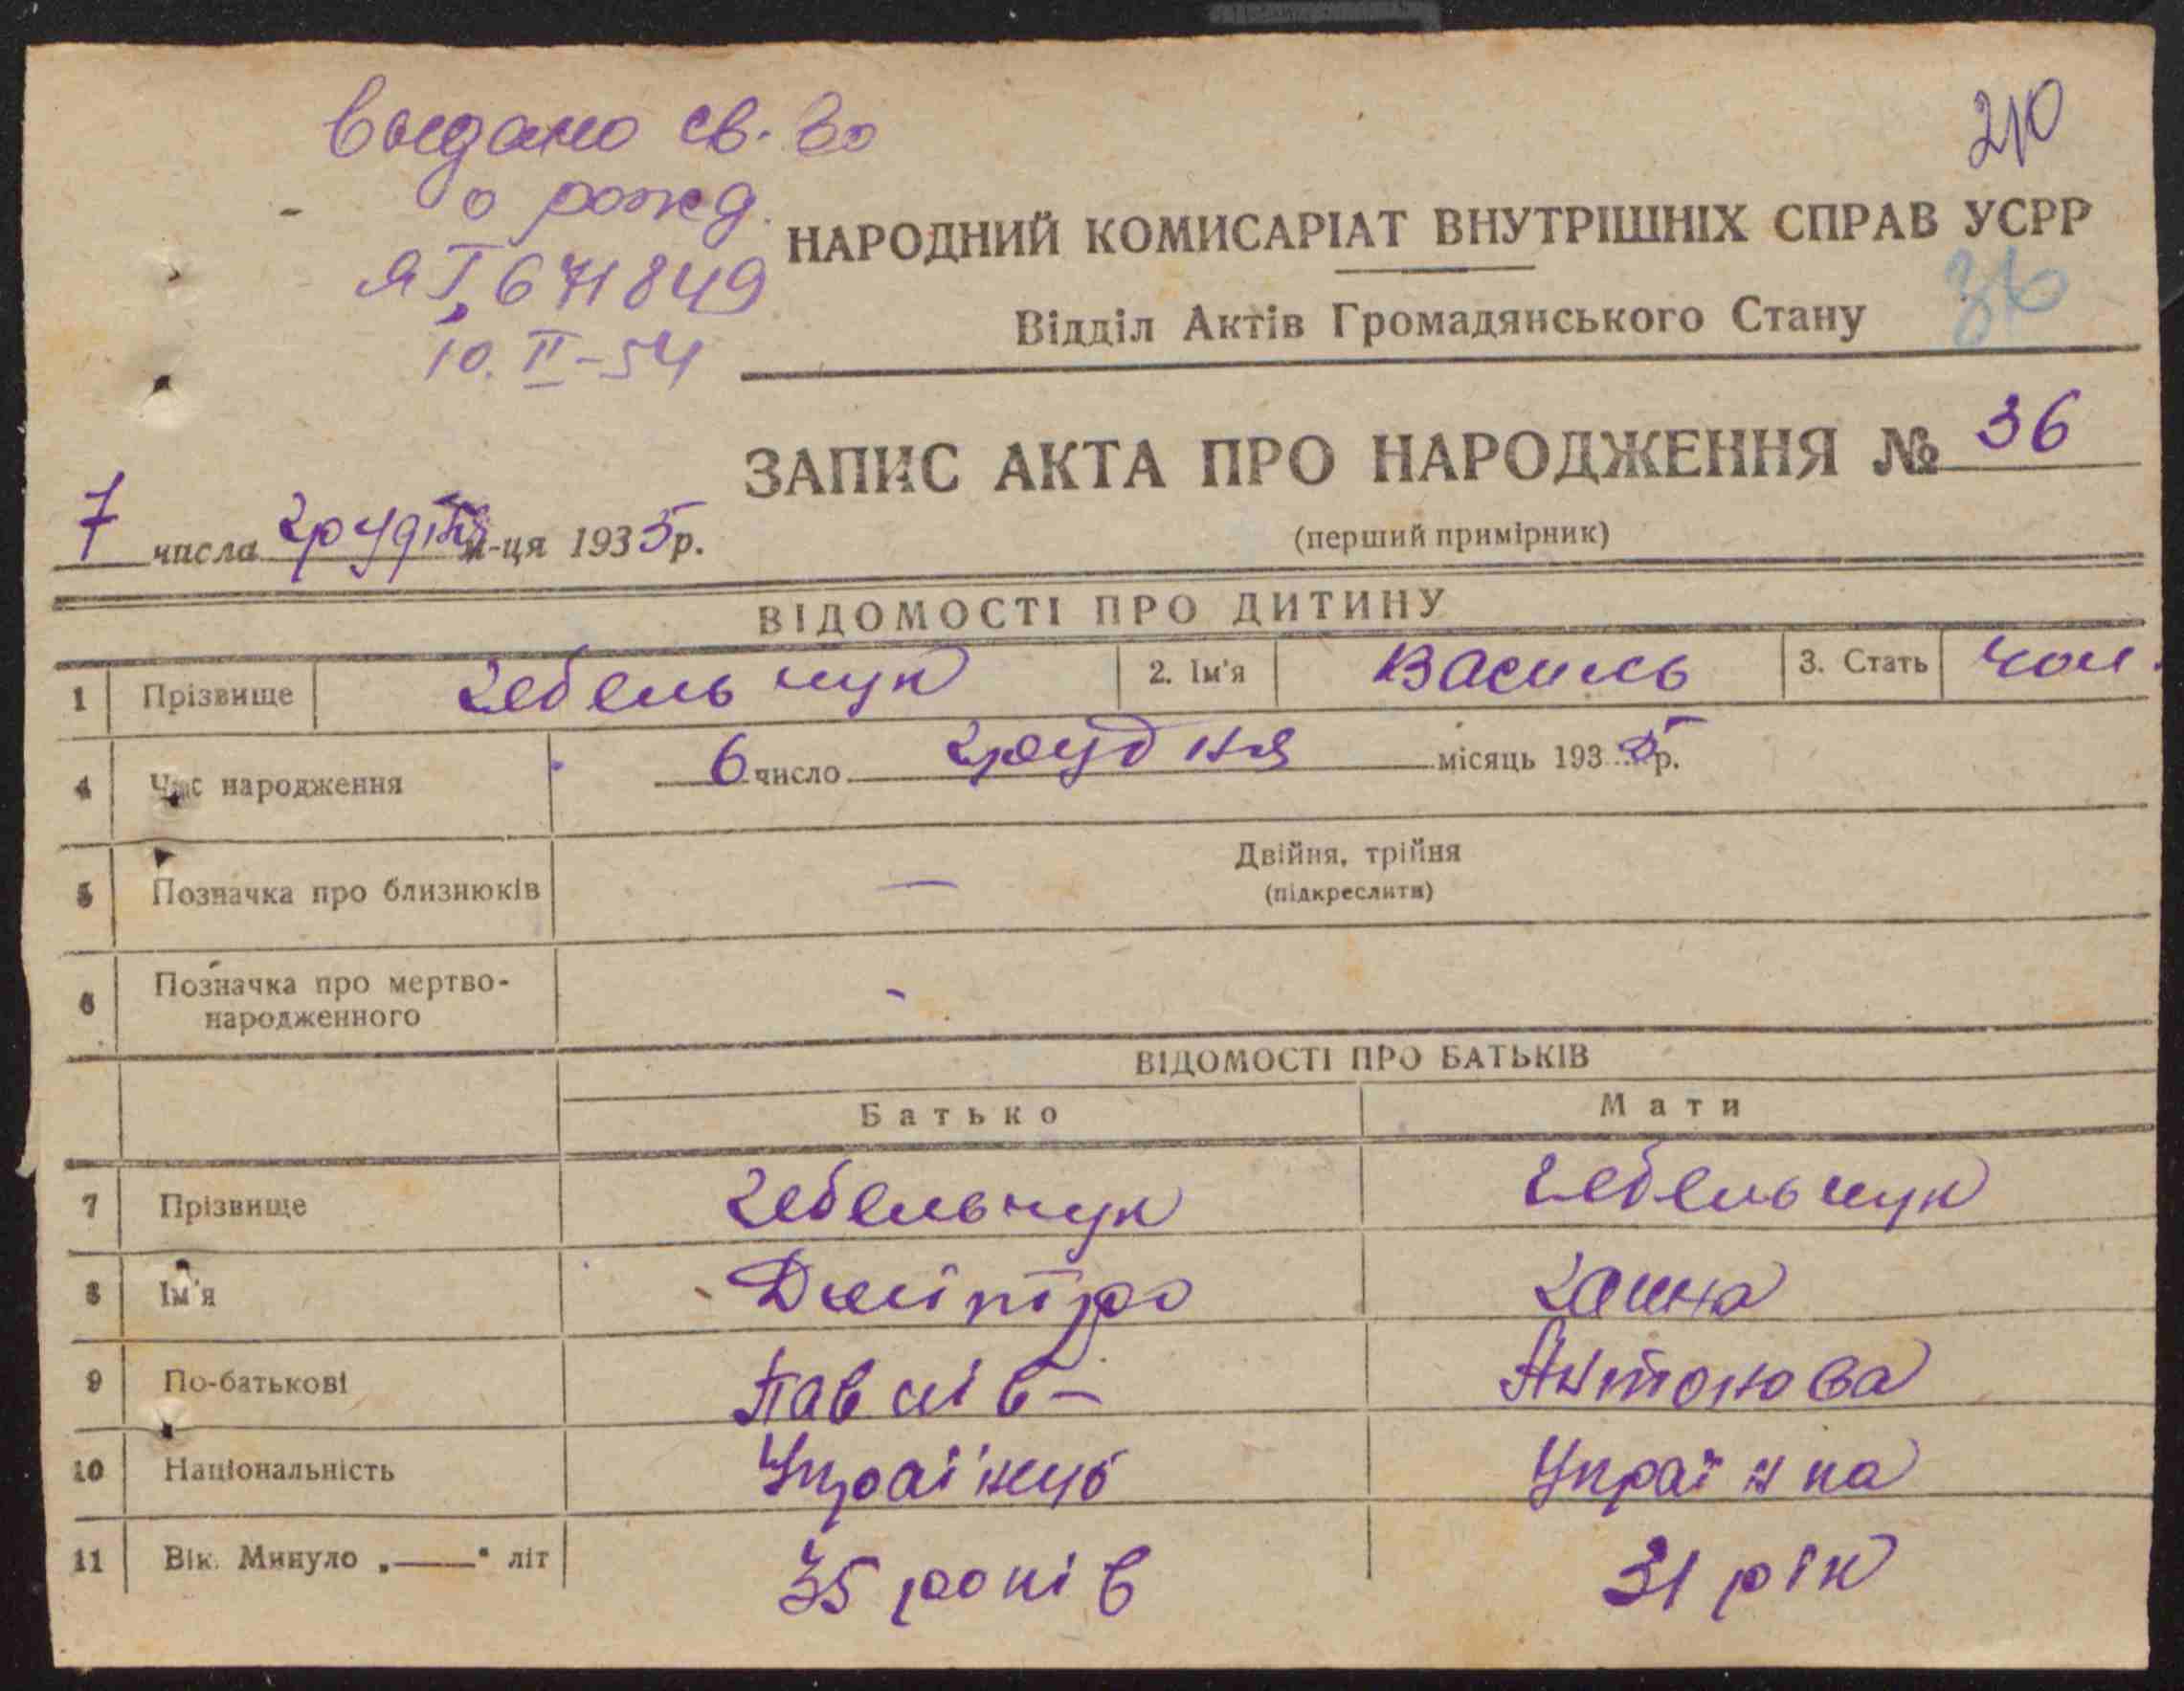 выдано св-во
о рожд.
ЯІ, 671849
10.II-54
210
НАРОДНИЙ КОМИСАРІАТ ВНУТРІШНІХ СПРАВ УСРР
Відділ Актів Громадянського Стану 36
ЗАПИС АКТА ПРО НАРОДЖЕННЯ № 36
(перший примірник)
7 числа грудня м-ця 1935 р.
ВІДОМОСТІ ПРО ДИТИНУ
1 Прізвище Гебельчук 2. Ім'я Василь 3. Стать чол.
4 Час народження 6 число грудня місяць 1935 р.
5 Позначка про близнюків — Двійня, трійня
(підкреслити)
6 Позначка про мертво-
народженного -
ВІДОМОСТІ ПРО БАТЬКІВ
Батько Мати
7 Прізвище Гебельчук Гебельчук
8 Ім'я Дмітро Ганна
9 По-батькові Павлів- Антонова
10 Національність Українць Українка
11 Вік. Минуло „——" літ 35 років 31 рік